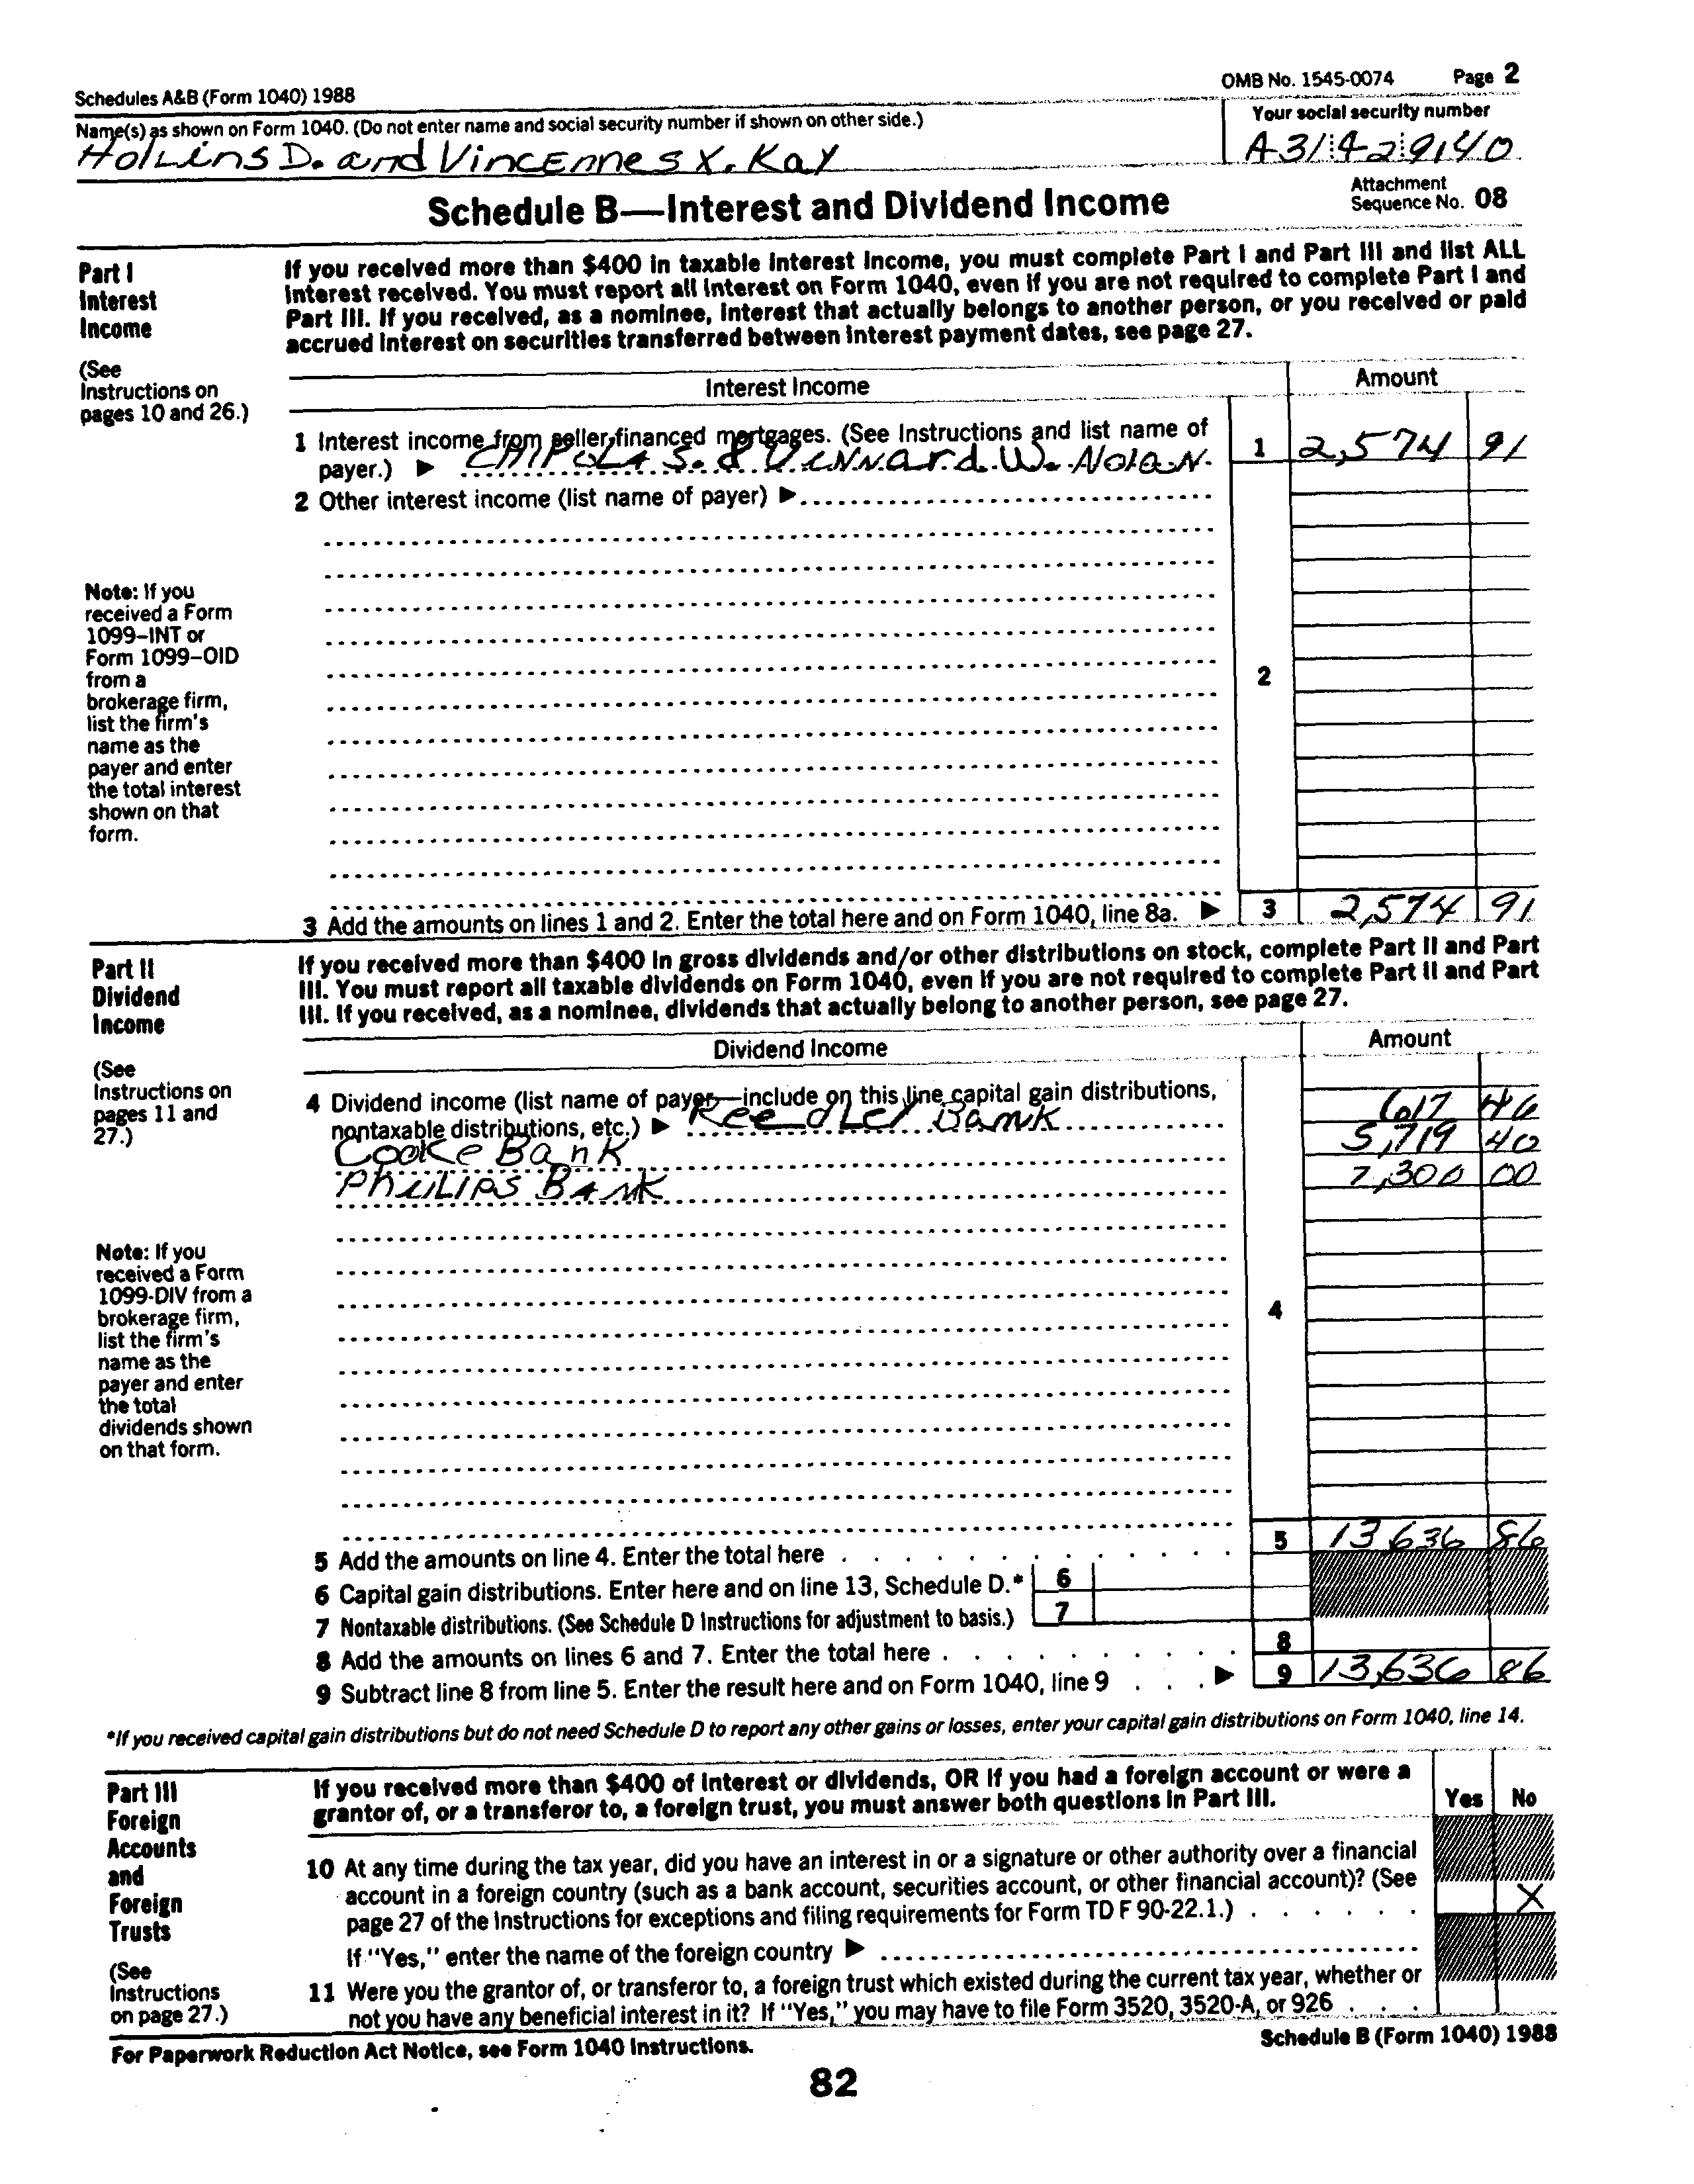 Schedules A&B (Form 1040) 1988
OMB No. 1545-0074 Page 2
Name(s) as shown on Form 1040. (Do not enter name and social security number if shown on other side.)
Your social security number
Hollins D. and Vincennes X. Kay
A31 42 9140
Schedule B—Interest and Dividend Income
Attachment
Sequence No. 08
Part I
Interest
Income
(See
Instructions on
pages 10 and 26.)
If you received more than $400 in taxable interest income, you must complete Part I and Part III and list ALL
interest received. You must report all interest on Form 1040, even if you are not required to complete Part I and
Part III. If you received, as a nominee, interest that actually belongs to another person, or you received or paid
accrued interest on securities transferred between interest payment dates, see page 27.
Interest Income
Amount
1 Interest income from seller-financed mortgages. (See Instructions and list name of
payer.) ▶ CHIPOLA S. & VENNard W. Nolan
1 2,574 91
2 Other interest income (list name of payer) ▶
Note: If you
received a Form
1099–INT or
Form 1099–OID
from a
brokerage firm,
list the firm's
name as the
payer and enter
the total interest
shown on that
form.
2
3 Add the amounts on lines 1 and 2. Enter the total here and on Form 1040, line 8a. ▶ 3 2,574 91
Part II
Dividend
Income
(See
Instructions on
pages 11 and
27.)
If you received more than $400 in gross dividends and/or other distributions on stock, complete Part II and Part
III. You must report all taxable dividends on Form 1040, even if you are not required to complete Part II and Part
III. If you received, as a nominee, dividends that actually belong to another person, see page 27.
Dividend Income
Amount
4 Dividend income (list name of payer—include on this line capital gain distributions,
nontaxable distributions, etc.) ▶ Reedley Bank 617 46
Cooke Bank 5,719 40
Phillips Bank 7,300 00
Note: If you
received a Form
1099-DIV from a
brokerage firm,
list the firm's
name as the
payer and enter
the total
dividends shown
on that form.
4
5 Add the amounts on line 4. Enter the total here 5 13,636 86
6 Capital gain distributions. Enter here and on line 13, Schedule D.* 6
7 Nontaxable distributions. (See Schedule D Instructions for adjustment to basis.) 7
8 Add the amounts on lines 6 and 7. Enter the total here 8
9 Subtract line 8 from line 5. Enter the result here and on Form 1040, line 9 ▶ 9 13,636 86
*If you received capital gain distributions but do not need Schedule D to report any other gains or losses, enter your capital gain distributions on Form 1040, line 14.
Part III
Foreign
Accounts
and
Foreign
Trusts
(See
Instructions
on page 27.)
If you received more than $400 of interest or dividends, OR if you had a foreign account or were a
grantor of, or a transferor to, a foreign trust, you must answer both questions in Part III.
Yes No
10 At any time during the tax year, did you have an interest in or a signature or other authority over a financial
account in a foreign country (such as a bank account, securities account, or other financial account)? (See
page 27 of the Instructions for exceptions and filing requirements for Form TD F 90-22.1.) X
If "Yes," enter the name of the foreign country ▶
11 Were you the grantor of, or transferor to, a foreign trust which existed during the current tax year, whether or
not you have any beneficial interest in it? If "Yes," you may have to file Form 3520, 3520-A, or 926
For Paperwork Reduction Act Notice, see Form 1040 Instructions.
Schedule B (Form 1040) 1988
82